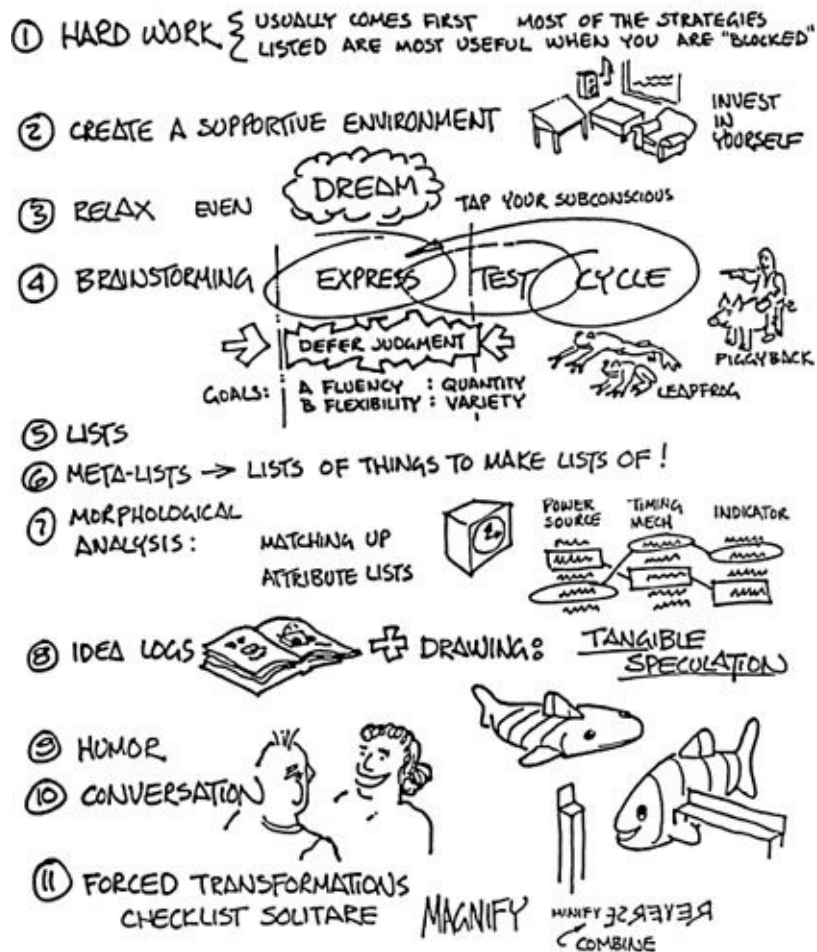 ① HARD WORK { USUALLY COMES FIRST MOST OF THE STRATEGIES
LISTED ARE MOST USEFUL WHEN YOU ARE "BLOCKED"
② CREATE A SUPPORTIVE ENVIRONMENT
INVEST
IN
YOURSELF
③ RELAX EVEN DREAM TAP YOUR SUBCONSCIOUS
④ BRAINSTORMING EXPRESS TEST CYCLE
DEFER JUDGMENT
GOALS: A FLUENCY : QUANTITY
B FLEXIBILITY : VARIETY
LEAPFROG
PIGGYBACK
⑤ LISTS
⑥ META-LISTS → LISTS OF THINGS TO MAKE LISTS OF!
⑦ MORPHOLOGICAL
ANALYSIS: MATCHING UP
ATTRIBUTE LISTS
POWER
SOURCE
TIMING
MECH
INDICATOR
⑧ IDEA LOGS + DRAWING: TANGIBLE
SPECULATION
⑨ HUMOR
⑩ CONVERSATION
⑪ FORCED TRANSFORMATIONS
CHECKLIST SOLITARE MAGNIFY MINIFY REVERSE
COMBINE